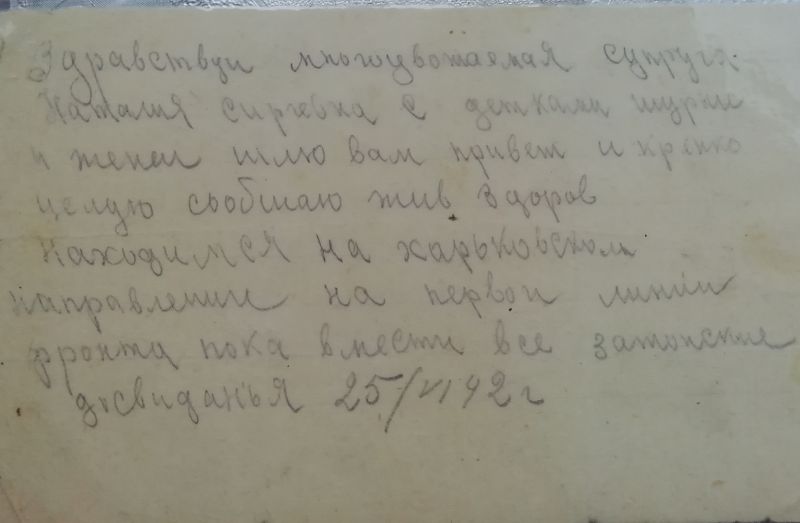 Здравствуи многоувожаемая супруга
Наталия Сиргевна с детками шурки
и жени шлю вам привет и крепко
целую сообшаю жив здоров
Находимся на харьковском
направлении на первои линии
фронта пока вмести все затонские
досвиданья 25/VI 42 г